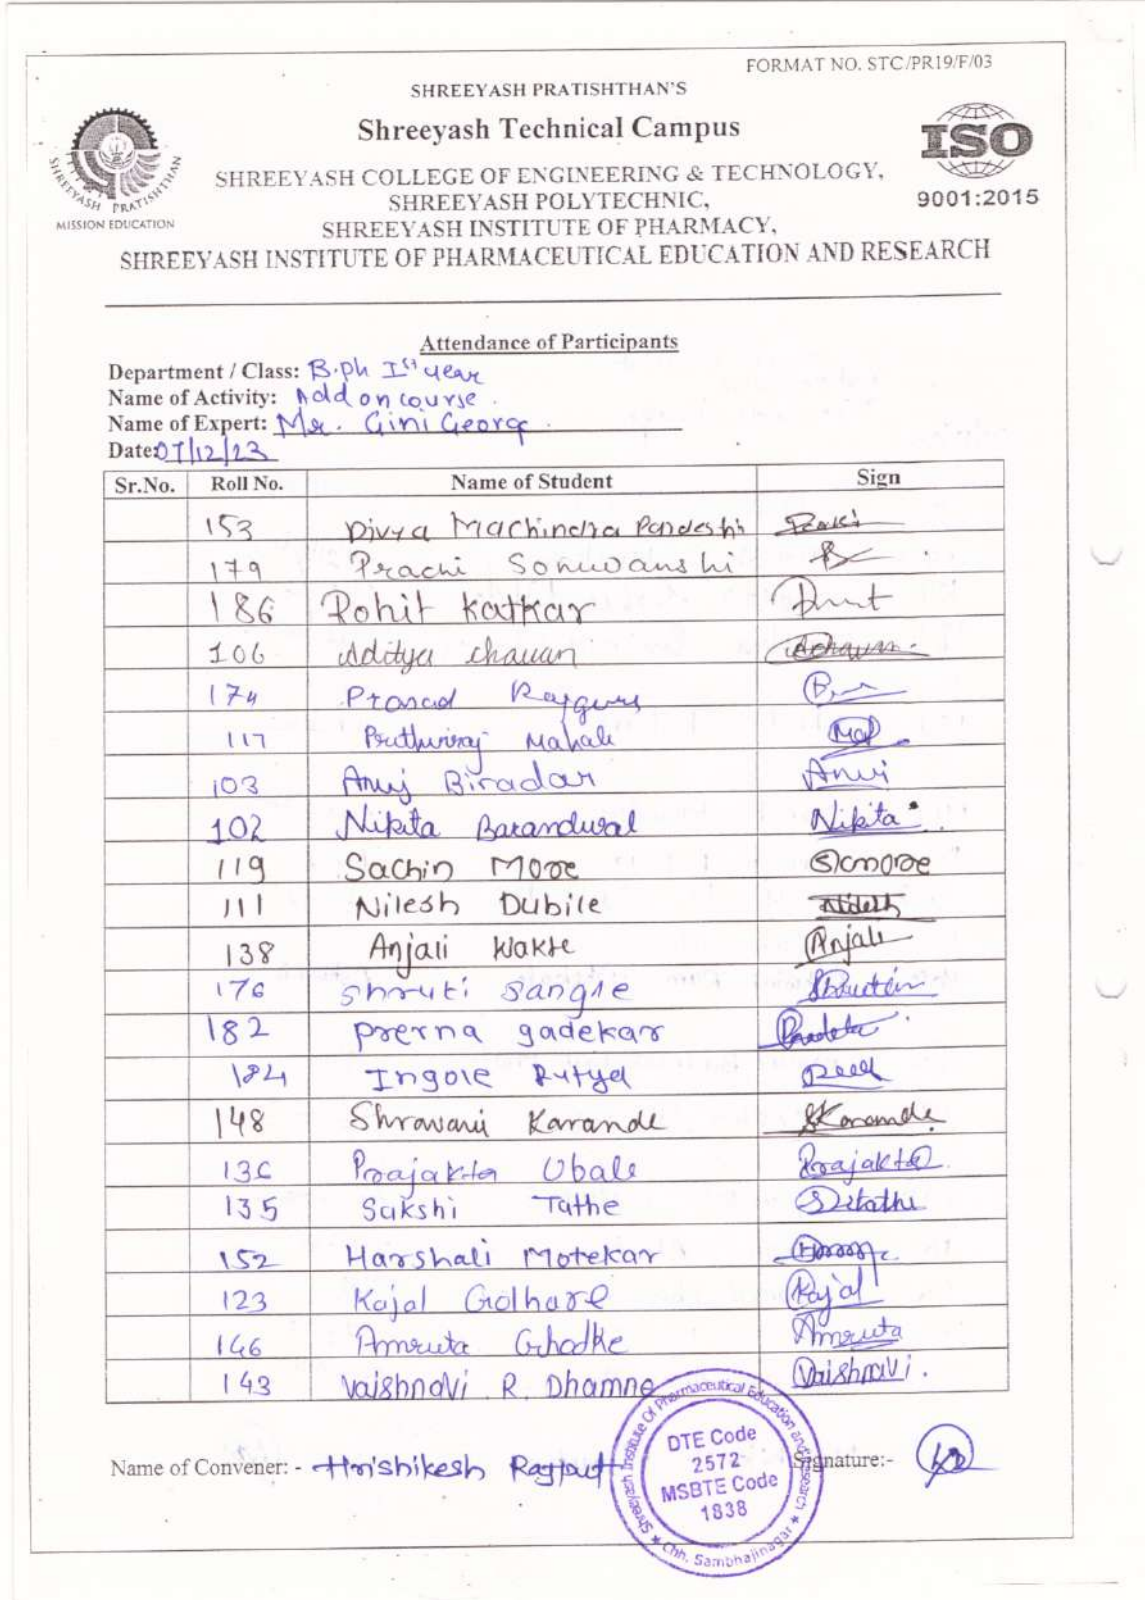 FORMAT NO. STC/PR19/F/03
SHREEYASH PRATISHTHAN'S
Shreeyash Technical Campus
SHREEYASH COLLEGE OF ENGINEERING & TECHNOLOGY,
SHREEYASH POLYTECHNIC,
SHREEYASH INSTITUTE OF PHARMACY,
SHREEYASH INSTITUTE OF PHARMACEUTICAL EDUCATION AND RESEARCH
SHREEYASH PRATISHTHAN
MISSION EDUCATION
ISO
9001:2015
Attendance of Participants
Department / Class: B.ph Ist year
Name of Activity: Add on course.
Name of Expert: Mr. Gini George
Date: 07/12/23
Sr.No. Roll No. Name of Student Sign
153 Divya Machindra Pardeshi
179 Prachi Sonuwanshi
186 Rohit Katkar
106 Aditya chauan
174 Prasad Rajguru
117 Pruthviraj Mahale
103 Anuj Biradar Anuj
102 Nikita Barandwal Nikita
119 Sachin More SCMORE
111 Nilesh Dubile Nilesh
138 Anjali Wakte Anjali
176 Shruti Sangle
182 prerna gadekar
184 Ingole Rutuja
148 Shravani Karande SKarande
136 Prajakta Ubale Prajakta
135 Sakshi Tathe
152 Harshali Motekar
123 Kajal Golhare Kajal
146 Amruta Ghodke Amruta
143 Vaishnavi R. Dhamne Vaishnavi.
Name of Convener: - Hrishikesh Rajput Signature:-
Shreeyash Institute Of Pharmaceutical Education and Research
DTE Code
2572
MSBTE Code
1838
Chh. Sambhajinagar